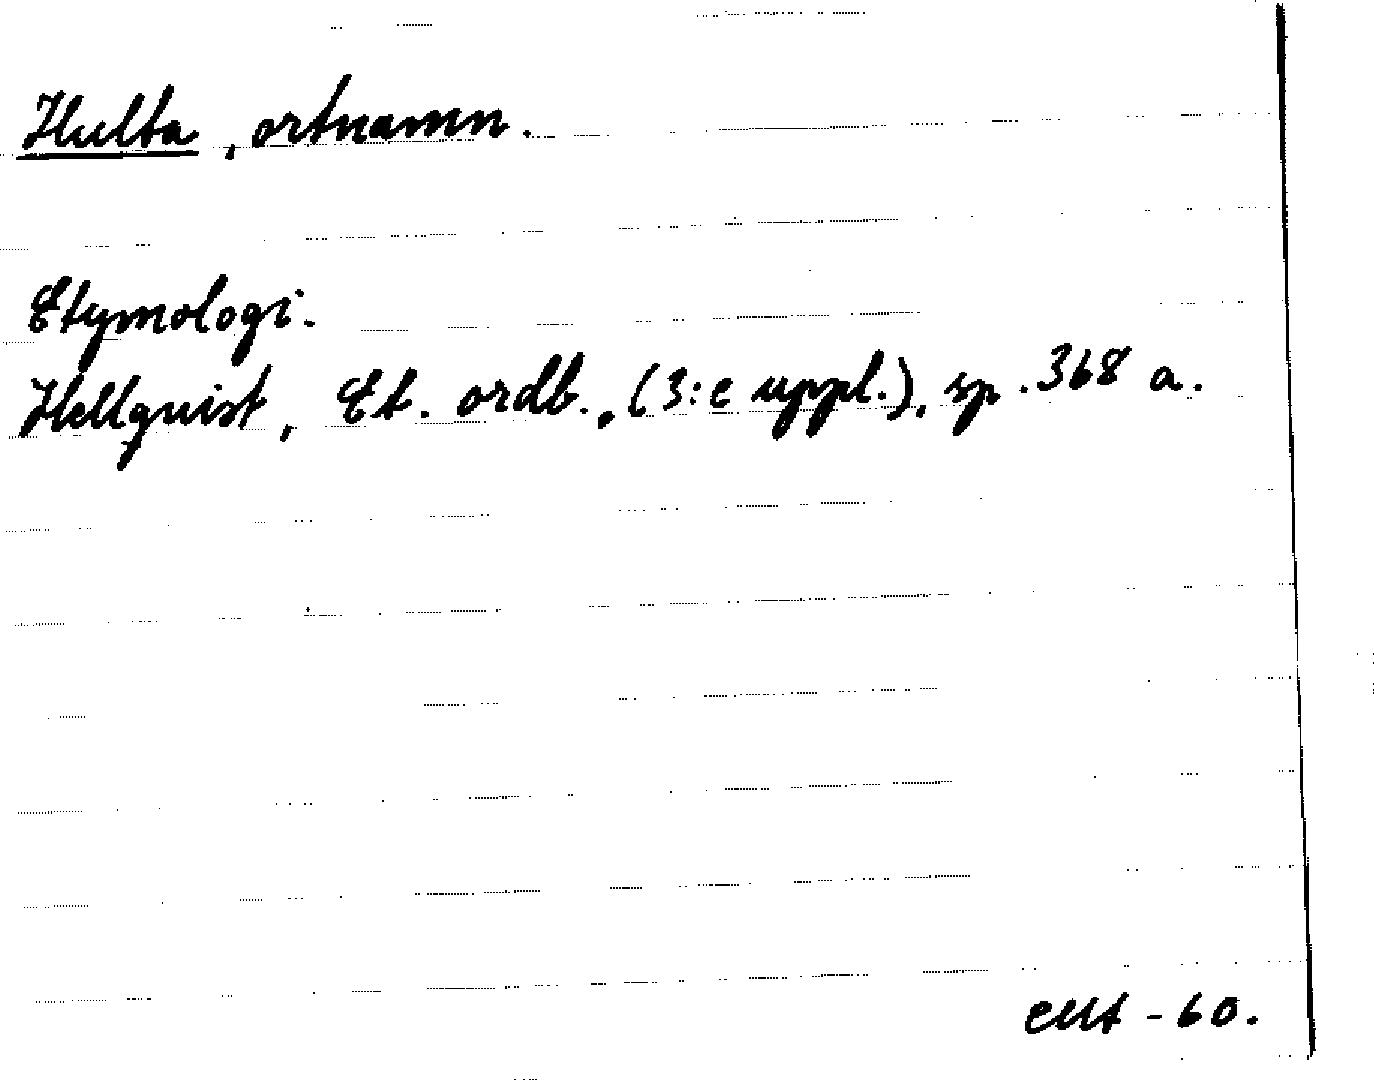 Hulta, ortnamn.
Etymologi.
Hellquist, Et. ordb., (3:e uppl.), sp. 368 a.
-60.